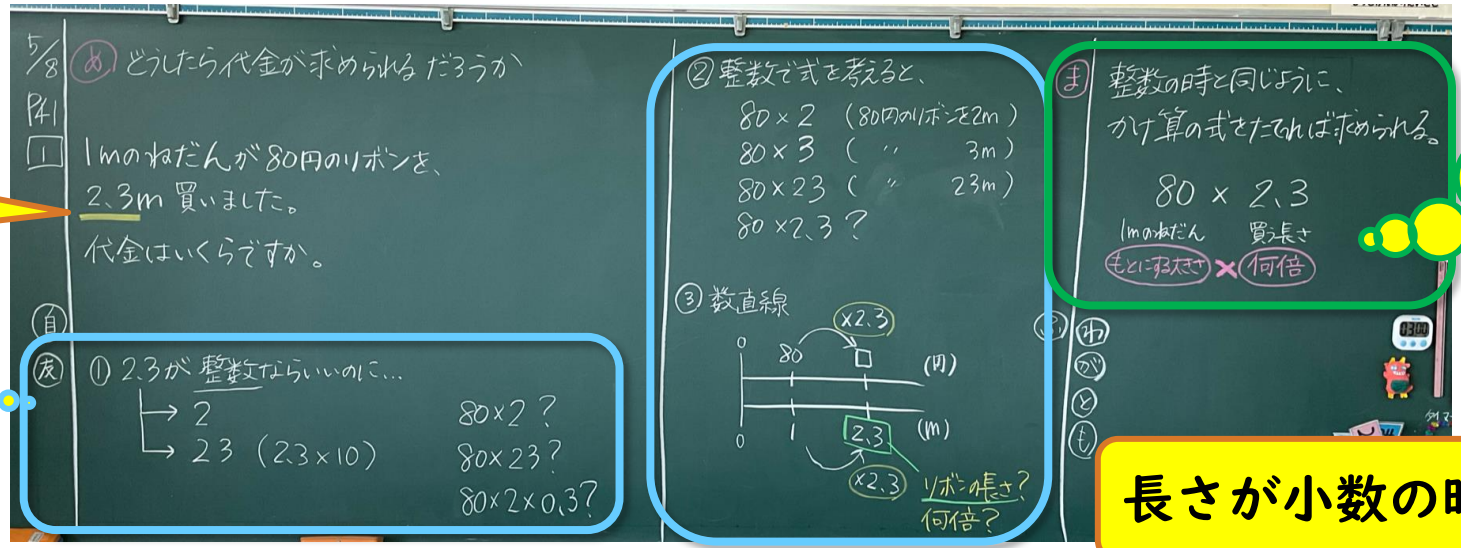 5/8
P41
1
め どうしたら代金が求められるだろうか
1mのねだんが80円のリボンを、
2.3m買いました。
代金はいくらですか。
自
友
① 2.3が整数ならいいのに…
→ 2 80×2?
→ 23 (2.3×10) 80×23?
80×2×0.3?
② 整数で式を考えると、
80×2 (80円のリボンを2m)
80×3 ( 〃 3m)
80×23 ( 〃 23m)
80×2.3?
③ 数直線
×2.3
0 80 □ (円)
0 1 2.3 (m)
×2.3
リボンの長さ?
何倍?
ま 整数の時と同じように、
かけ算の式をたてれば求められる。
80 × 2.3
1mのねだん 買う長さ
もとにする大きさ × 何倍
わ
が
と
も
長さが小数の時